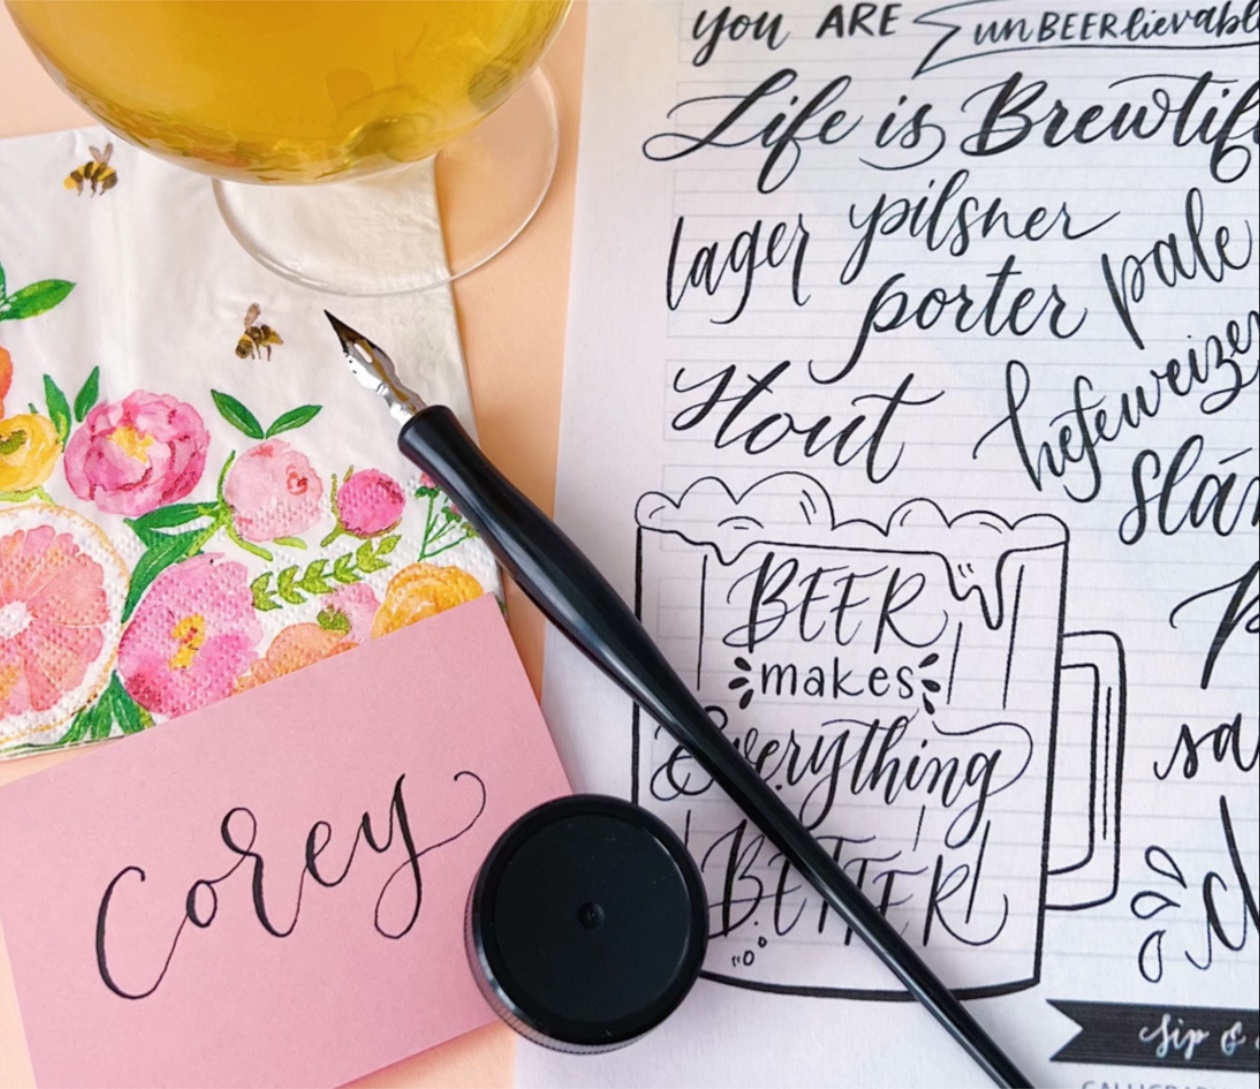 you ARE unBEERlievabl
Life is Brewtif
lager pilsner
porter pale
Stout hefeweizer
Slá
BEER
makes
Everything
BETTER
sa
Sip &
Corey